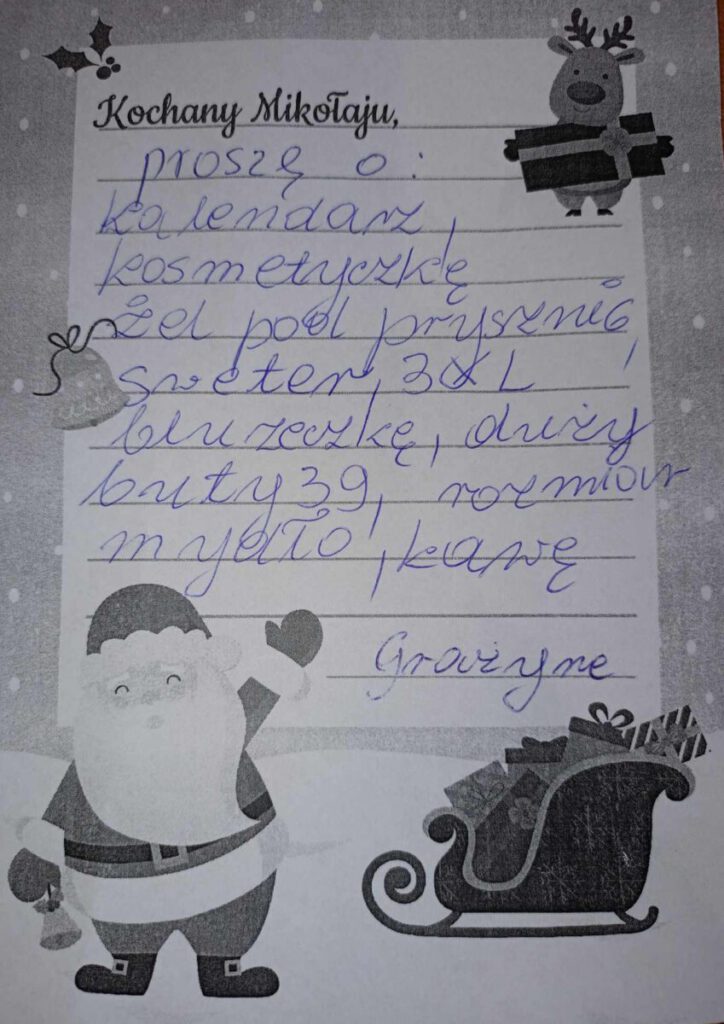 Kochany Mikołaju,
proszę o:
kalendarz,
kosmetyczkę
Żel pod prysznić,
sweter, 3XL
bluzeczkę, duży
buty 39, rozmiar
mydło, kawę
Grażyne